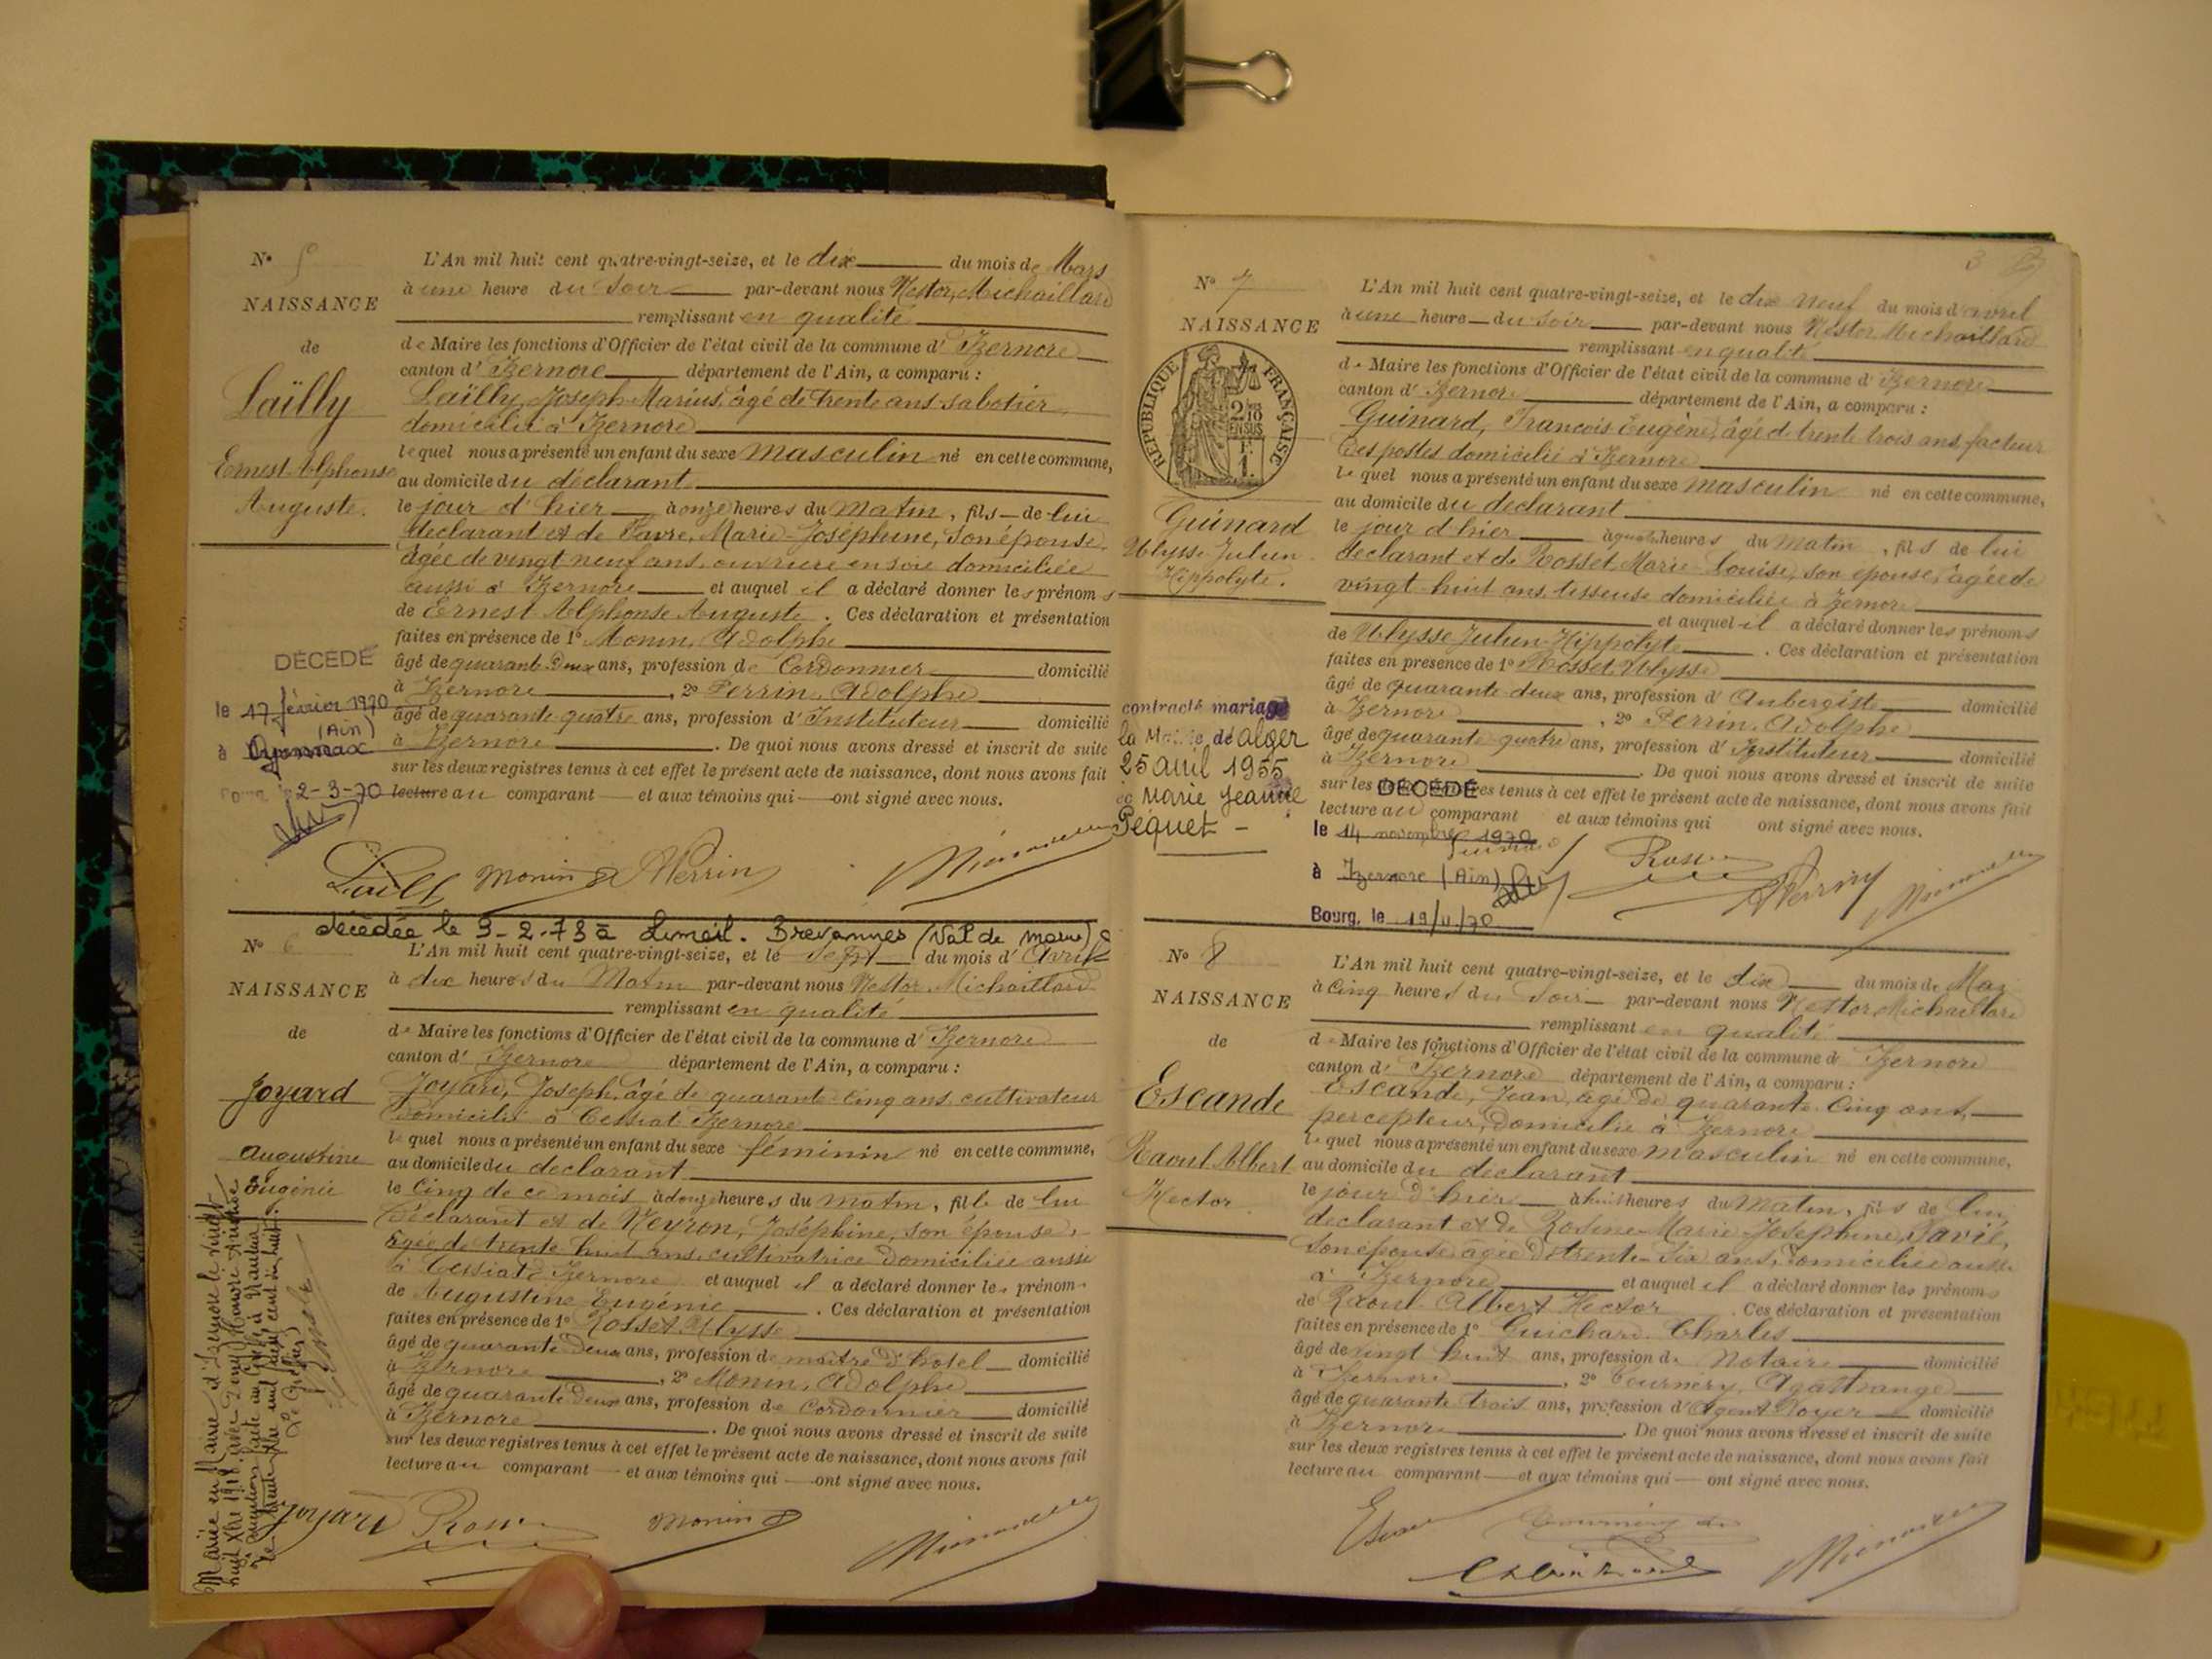 N° 5
NAISSANCE
de
Laïlly
Ernest Alphonse
Auguste.
DÉCÉDÉ
le 17 février 1970
(Ain)
à Oyonnax
2-3-70
L'An mil huit cent quatre-vingt-seize, et le dix du mois de Mars
à une heure du Soir par-devant nous Nestor Michaillard
remplissant en qualité
de Maire les fonctions d'Officier de l'état civil de la commune d'Izernore
canton d'Izernore département de l'Ain, a comparu :
Laïlly, Joseph Marius, âgé de trente ans sabotier
domicilié à Izernore
lequel nous a présenté un enfant du sexe masculin né en cette commune,
au domicile du déclarant
le jour d'hier à onze heures du matin, fils de lui
déclarant et de Favre, Marie-Joséphine, son épouse,
âgée de vingt neuf ans, ouvrière en soie domiciliée
aussi à Izernore et auquel il a déclaré donner les prénoms
de Ernest Alphonse Auguste. Ces déclaration et présentation
faites en présence de 1° Monin, Adolphe
âgé de quarante deux ans, profession de Cordonnier domicilié
à Izernore, 2° Perrin, Adolphe
âgé de quarante quatre ans, profession d'Instituteur domicilié
à Izernore. De quoi nous avons dressé et inscrit de suite
sur les deux registres tenus à cet effet le présent acte de naissance, dont nous avons fait
lecture au comparant et aux témoins qui ont signé avec nous.
Lailly Monin A Perrin
décédée le 9-2-73 à Limeil-Brevannes (Val de Marne)
N° 6
NAISSANCE
de
Joyard
Augustine
Eugénie
L'An mil huit cent quatre-vingt-seize, et le Sept du mois d'Avril
à dix heures du Matin par-devant nous Nestor Michaillard
remplissant en qualité
de Maire les fonctions d'Officier de l'état civil de la commune d'Izernore
canton d'Izernore département de l'Ain, a comparu :
Joyard, Joseph, âgé de quarante cinq ans, cultivateur
domicilié à Cessiat Izernore
lequel nous a présenté un enfant du sexe féminin né en cette commune,
au domicile du déclarant
le cinq de ce mois à douze heures du matin, fille de lui
déclarant et de Neyron, Joséphine, son épouse,
âgée de trente huit ans, cultivatrice domiciliée aussi
à Cessiat Izernore et auquel il a déclaré donner les prénoms
de Augustine Eugénie. Ces déclaration et présentation
faites en présence de 1° Rosset Ulysse
âgé de quarante deux ans, profession de maître d'hôtel domicilié
à Izernore, 2° Monin, Adolphe
âgé de quarante deux ans, profession de Cordonnier domicilié
à Izernore. De quoi nous avons dressé et inscrit de suite
sur les deux registres tenus à cet effet le présent acte de naissance, dont nous avons fait
lecture au comparant et aux témoins qui ont signé avec nous.
Joyard Monin
Mariée en Mairie d'Izernore le vingt
huit Xbre 1918, avec
Le Greffier
3
N° 7
NAISSANCE
RÉPUBLIQUE FRANÇAISE
2/10 EN SUS
F. 1.
Guinard
Ulysse Julien
Hippolyte.
contracté mariage
la Mairie de Alger
25 avril 1955
Marie Jeanne
Pequet
L'An mil huit cent quatre-vingt-seize, et le dix neuf du mois d'avril
à une heure du Soir par-devant nous Nestor Michaillard
remplissant en qualité
de Maire les fonctions d'Officier de l'état civil de la commune d'Izernore
canton d'Izernore département de l'Ain, a comparu :
Guinard, François Eugène, âgé de trente trois ans, facteur
des postes domicilié à Izernore
lequel nous a présenté un enfant du sexe masculin né en cette commune,
au domicile du déclarant
le jour d'hier à quatre heures du matin, fils de lui
déclarant et de Rosset, Marie Louise, son épouse, âgée de
vingt huit ans, tisseuse domiciliée à Izernore
et auquel il a déclaré donner les prénoms
de Ulysse Julien Hippolyte. Ces déclaration et présentation
faites en présence de 1° Rosset, Ulysse
âgé de quarante deux ans, profession d'Aubergiste domicilié
à Izernore, 2° Perrin, Adolphe
âgé de quarante quatre ans, profession d'Instituteur domicilié
à Izernore. De quoi nous avons dressé et inscrit de suite
sur les deux registres tenus à cet effet le présent acte de naissance, dont nous avons fait
lecture au comparant et aux témoins qui ont signé avec nous.
DÉCÉDÉ
le 14 novembre 1970
à Izernore (Ain)
Bourg, le 19/11/70
A Perrin
N° 8
NAISSANCE
de
Escande
Raoul Albert
Hector
L'An mil huit cent quatre-vingt-seize, et le dix du mois de Mai
à cinq heures du Soir par-devant nous Nestor Michaillard
remplissant en qualité
de Maire les fonctions d'Officier de l'état civil de la commune d'Izernore
canton d'Izernore département de l'Ain, a comparu :
Escande, Jean, âgé de quarante cinq ans,
percepteur, domicilié à Izernore
lequel nous a présenté un enfant du sexe masculin né en cette commune,
au domicile du déclarant
le jour d'hier à huit heures du Matin, fils de lui
déclarant et de Rosine Marie Josephine
son épouse âgée de trente six ans, domiciliée aussi
à Izernore et auquel il a déclaré donner les prénoms
de Raoul Albert Hector. Ces déclaration et présentation
faites en présence de 1° Guichard Charles
âgé de vingt huit ans, profession de Notaire domicilié
à Izernore, 2° Tournéry,
âgé de quarante trois ans, profession d'Agent Voyer domicilié
à Izernore. De quoi nous avons dressé et inscrit de suite
sur les deux registres tenus à cet effet le présent acte de naissance, dont nous avons fait
lecture au comparant et aux témoins qui ont signé avec nous.